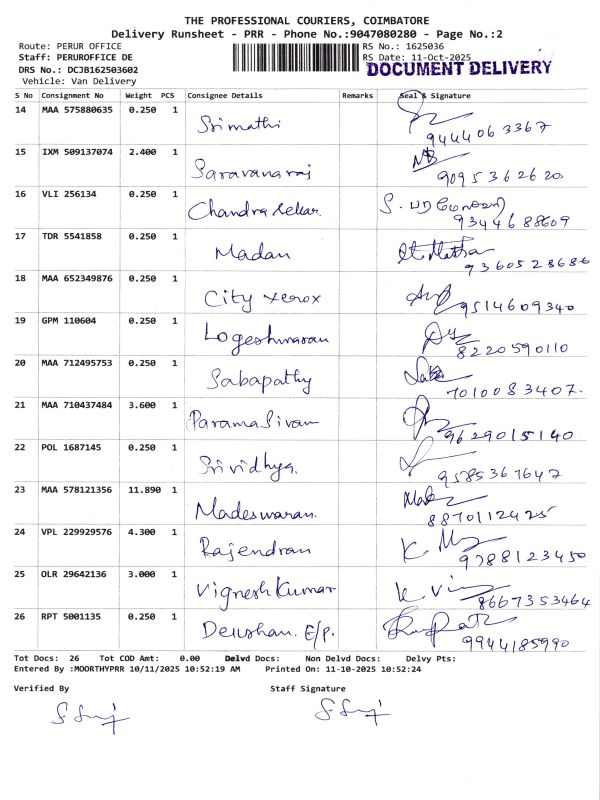 THE PROFESSIONAL COURIERS, COIMBATORE
Delivery Runsheet - PRR - Phone No.:9047080280 - Page No.:2
Route: PERUR OFFICE
Staff: PERUROFFICE DE
DRS No.: DCJB162503602
Vehicle: Van Delivery
RS No.: 1625036
RS Date: 11-Oct-2025
DOCUMENT DELIVERY
S No Consignment No Weight PCS Consignee Details Remarks Seal & Signature
14 MAA 575880635 0.250 1 Srimathi 9444063367
15 IXM 509137074 2.400 1 Saravanaraj 9095362620
16 VLI 256134 0.250 1 Chandra sekar 9344688609
17 TDR 5541858 0.250 1 Madan 9360528686
18 MAA 652349876 0.250 1 City xerox 9514609340
19 GPM 110604 0.250 1 Logeshwaran 8220590110
20 MAA 712495753 0.250 1 Sabapathy 7010083407.
21 MAA 710437484 3.600 1 Paramasivam 9629015140
22 POL 1687145 0.250 1 Srividhya. 9585367647
23 MAA 578121356 11.890 1 Madeswaran. 8870112425
24 VPL 229929576 4.300 1 Rajendran 9788123450
25 OLR 29642136 3.000 1 Vignesh Kumar 8667353464
26 RPT 5001135 0.250 1 E/P. 9944185990
Tot Docs: 26 Tot COD Amt: 0.00 Delvd Docs: Non Delvd Docs: Delvy Pts:
Entered By :MOORTHYPRR 10/11/2025 10:52:19 AM Printed On: 11-10-2025 10:52:24
Verified By Staff Signature